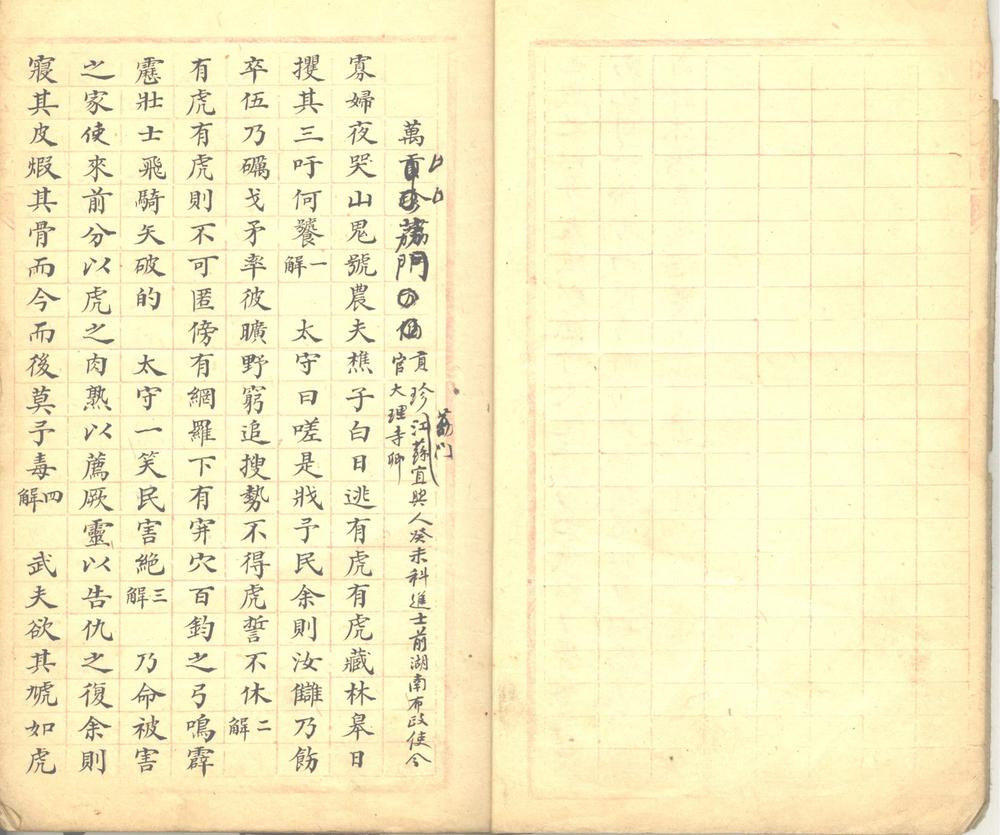 萬貢珍荔門の佰貢珍江蘇宜興人癸未科進士前湖南布政使今官大理寺卿
荔门
寡婦夜哭山鬼號農夫樵子白日逃有虎有虎藏林皋日
攫其三吁何饕解一　太守曰嗟是戕予民余則汝讎乃飭
卒伍乃礪戈矛率彼曠野窮追搜勢不得虎誓不休解二
有虎有虎則不可匿傍有網羅下有穽穴百鈞之弓鳴霹
靂壯士飛騎矢破的　太守一笑民害絕解三　乃命被害
之家使來前分以虎之肉熟以薦厥靈以告仇之復余則
寢其皮煆其骨而今而後莫予毒解四　武夫欲其虓如虎